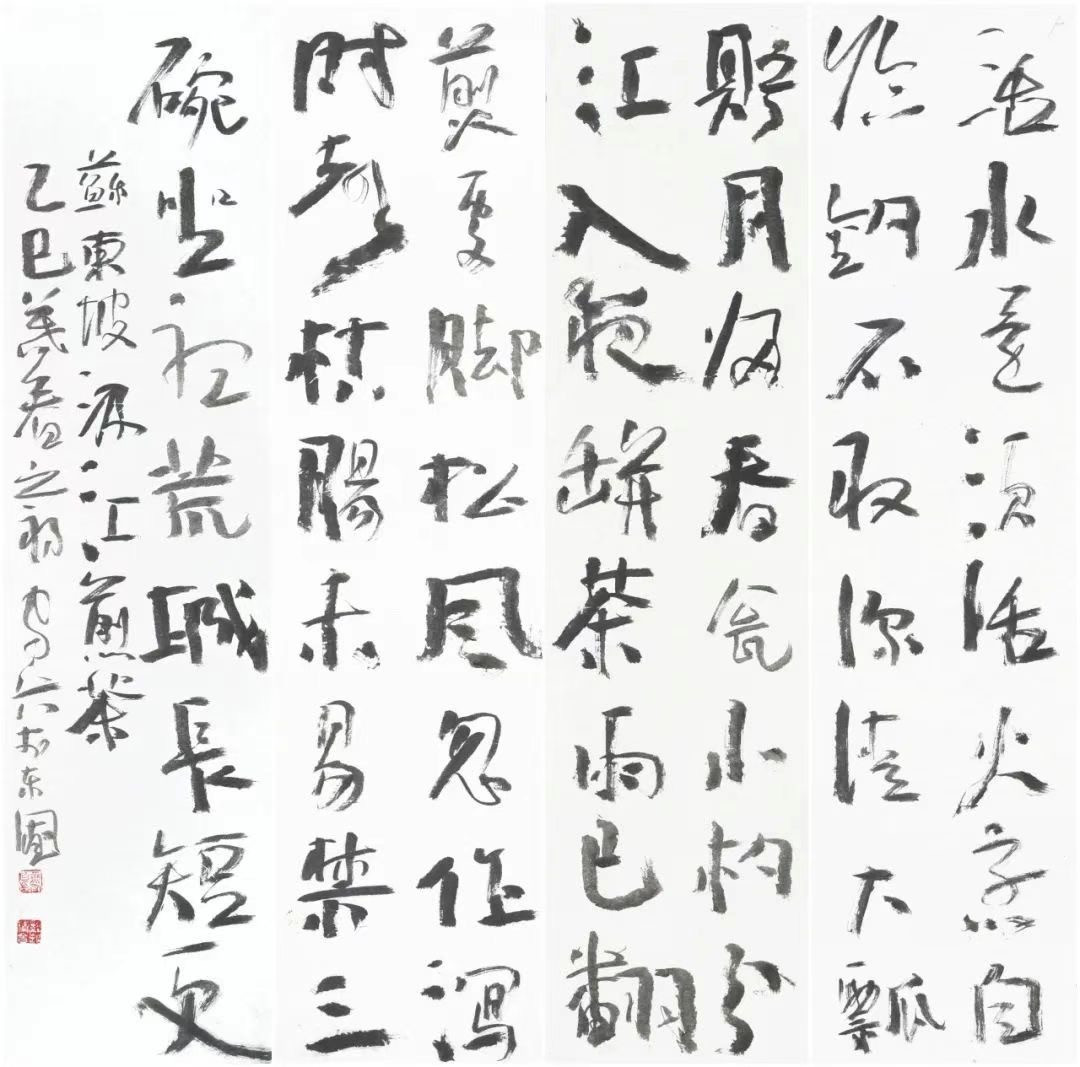 活水還須活火烹自
臨釣石取深清大瓢
貯月歸春瓮小杓分
江入夜缾茶雨已翻
煎處腳松風忽作瀉
時聲枯腸未易禁三
碗坐聽荒城長短更
蘇東坡汲江煎茶
乙巳暮春之初於東園